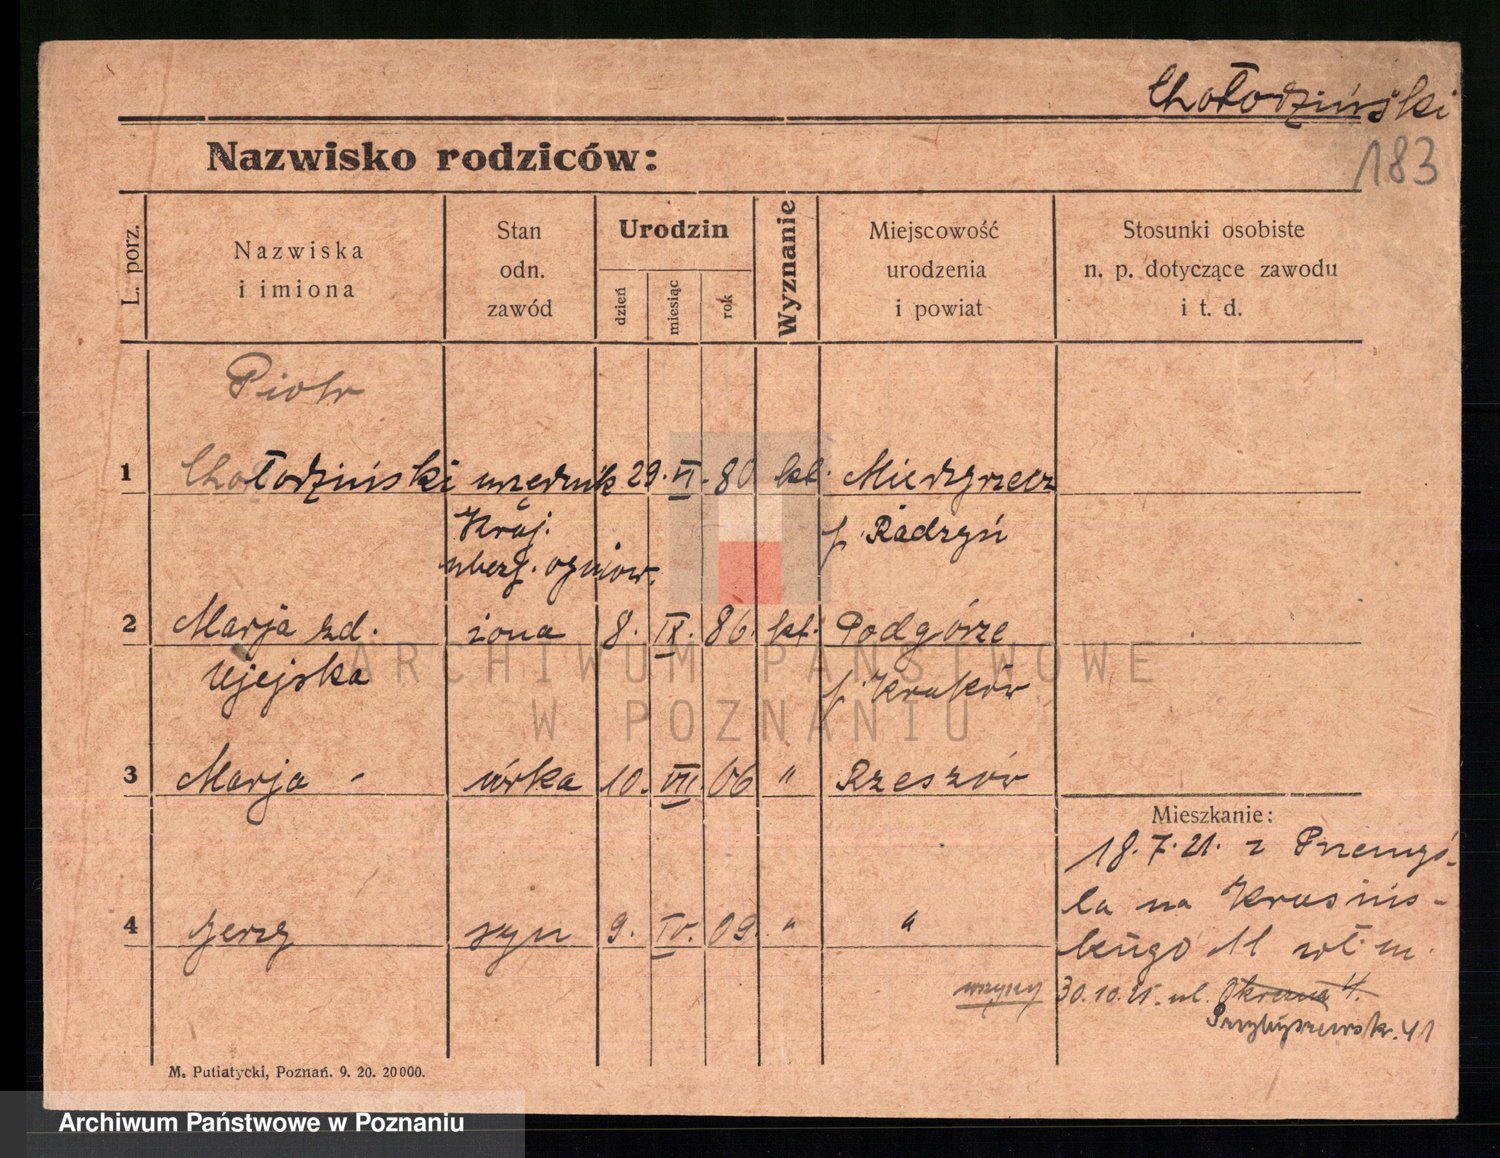 Chołodziński
183
Nazwisko rodziców:
L. porz.
Nazwiska
i imiona
Stan
odn.
zawód
Urodzin
dzień
miesiąc
rok
Wyznanie
Miejscowość
urodzenia
i powiat
Stosunki osobiste
n. p. dotyczące zawodu
i t. d.
Piotr
1 Chołodziński urzędnik 29. VI. 80 kt. Miedzyrzecz
Kraj. p. Radzyń
ubezp. ogniow.
2 Marja zd. żona 8. IX. 86. kt. Podgórze
Ujejska p. Kraków
3 Marja - córka 10. VII. 06 " Rzeszów
Mieszkanie:
18.7.21. z Przemyś-
la na Krasińs-
kiego 11 wł. m.
4 Jerzy syn 9. IV. 09. " "
wszyscy 30.10.21. ul. Okrężna 4.
Przybyszewsk. 41
M. Putiatycki, Poznań. 9. 20. 20000.
ARCHIWUM PAŃSTWOWE
W POZNANIU
Archiwum Państwowe w Poznaniu